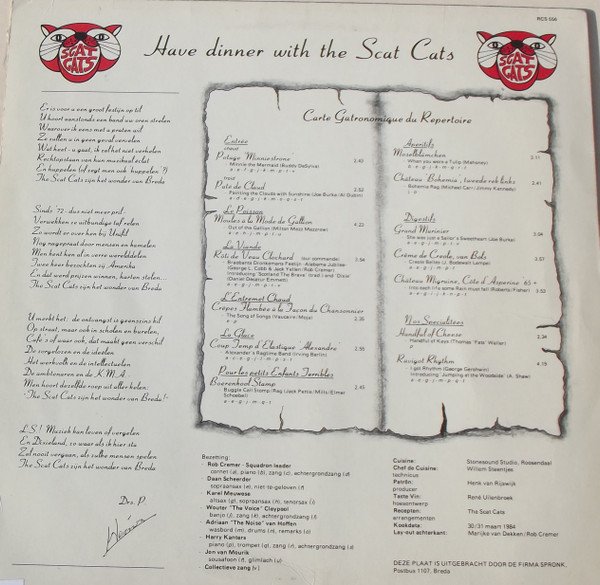 RCS 556
SCAT CATS
Have dinner with the Scat Cats
SCAT CATS
Er is voor u een groot festijn op til
U hoort aanstonds een band uw oren strelen
Waarover ik eens met u praten wil
Ze zullen u in geen geval vervelen
Wat heet - u gaat, ik zal het niet verhelen
Rechtopstaan van hun muzikaal eclat
En huppelen (of zegt men ook huppelen ?)
The Scat Cats zijn het wonder van Breda
Sinds '72 - dus niet meer pril -
Verwekken ze uitbundige taferelen
Zo wordt er over hen bij
Nog nagepraat door mensen en kamelen
Men kent hen al in verre werelddelen
Twee keer bezochten zij Amerika
En dat werd prijzen winnen, harten stelen...
The Scat Cats zijn het wonder van Breda
U merkt het: de ontvangst is geenszins kil
Op straat, maar ook in scholen en burelen,
Café's of waar ook, dat maakt geen verschil
De zorgelozen en de ideelen
Het werkvolk en de intellectuelen
De ambtenaren en de K.M.A.
Men hoort dezelfde roep uit aller kelen:
"The Scat Cats zijn het wonder van Breda!"
L.S.! Muziek kan leven of vergelen
En Dixieland, zo waar als ik hier sta
Zal nooit vergaan, als zulke mensen spelen
The Scat Cats zijn het wonder van Breda
Drs. P.
Carte Gatronomique du Répertoire
Entrée
froid
Potage Minniestrone 2.43
Minnie the Mermaid (Buddy DeSylva)
Paté de Claud 2.52
Painting the Clouds with Sunshine (Joe Burke/Al Dubin)
Le Poisson
Moules à la Mode de Gallion 4.22
Out of the Gallion (Milton Mezz Mezzrow)
La Viande
Rôti de Veau Clochard (sur commande)
Brabants Dronkemans Feestje - Alabama Jubilee
(George L. Cobb & Jack Yellen (Rob Cremer)
Introducing 'Scotland The Brave' 'Israel' and 'Dixie'
(Daniel Decatur Emmett)
L'Entremet Chaud
Crêpes Flambée à la Façon du Chansonnier
The Song of Songs (Vaucaire/Moya)
La Glace
Coup Temp d'Elastique Alexandre 2.55
Alexander's Ragtime Band (Irving Berlin)
Pour les petits Enfants Terribles
Boerenkool Stamp 2.45
Buggle Call Stomp (Rag) (Jack Pettis/Mills/Elmer Schoebel)
Apéritifs
Moselblümchen 2.11
When you wore a Tulip (Mahoney)
Château 'Bohemia', tweede rek links 2.41
Bohemia Rag (Michael Carr/Jimmy Kennedy)
Digestifs
Grand Marinier 3.04
She was just a Sailor's Sweetheart (Joe Burke)
Crème de Creole, van Bols 3.57
Creole Belles (J. Bodewalt Lampe)
Château Migraine, Côte d'Asperine 65+ 3.52
Into each life some Rain must fall (Roberts/Fisher)
Nos Spécialitées
Handful of Cheese 2.34
Handful of Keys (Thomas 'Fats' Waller)
Ravigot Rhythm 4.15
I got Rhythm (George Gershwin)
Introducing 'Jumping at the Woodside' (A. Shaw)
Bezetting:
Rob Cremer - Squadron leader
cornet (a), piano (b), zang (c), achtergrondzang (d)
Daan Scheerder
sopraansax (e), niet te-geloven (f)
Karel Meuwese
altsax (g), sopraansax (h), tenorsax (i)
Wouter "The Voice" Claypool
banjo (j), zang (k), achtergrondzang (l)
Adriaan "The Noise" van Hoften
wasbord (m), drums (n), remarks (o)
Harry Kanters
piano (p), trompet (q), zang (r), achtergrondzang (s)
Jon van Mourik
sousafoon (t), glimlach (u)
Collectieve zang (v)
Cuisine: Stonesound Studio, Roosendaal
Chef de Cuisine: Willem Steentjes
technicus
Patrôn: Henk van Rijswijk
producer
Taste Vin: René Uilenbroek
hoesontwerp
Recepten: The Scat Cats
arrangementen
Kookdata: 30/31 maart 1984
Lay-out achterkant: Marijke van Dekken/Rob Cremer
DEZE PLAAT IS UITGEBRACHT DOOR DE FIRMA SPRONK.
Postbus 1107, Breda